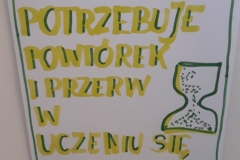 POTRZEBUJĘ
POWTÓREK
I PRZERW
W
UCZENIU SIĘ